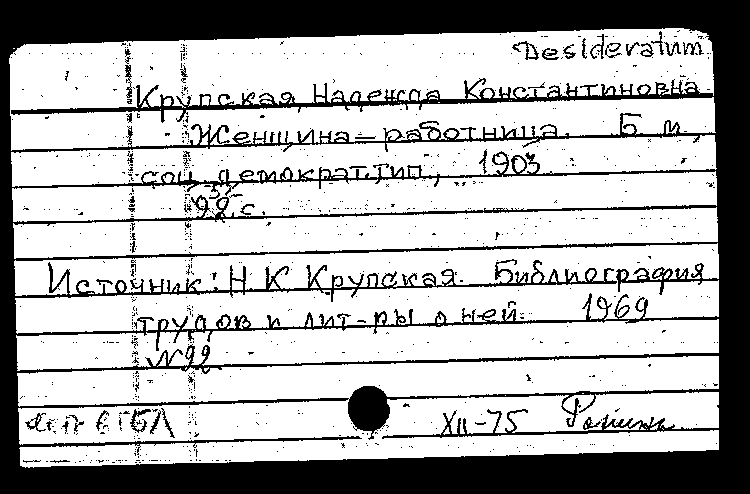 Desideratum
Крупская, Надежда Константиновна
Женщина - работница. Б. м.,
соц. демократ. тип., 1903
с.
Источник: Н. К. Крупская. Библиография
трудов и лит-ры о ней. 1969
№ 22.
есть в ГБЛ XII-75